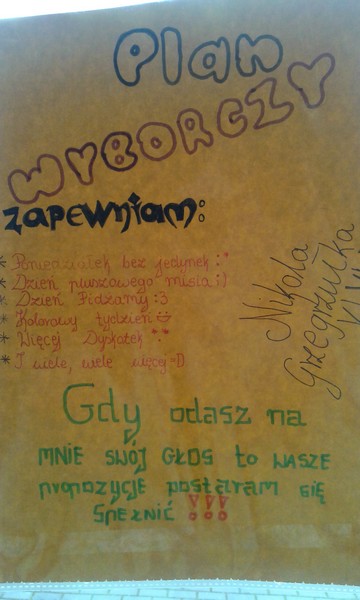 Plan
WYBORCZY
zapewniam:
* Poniedziałek bez jedynek :*
* Dzień pluszowego misia ;)
* Dzień Pidżamy :3
* Kolorowy tydzień
* Więcej Dyskotek
* I wiele, wiele więcej =D
Nikola
Grzegrzułka
Gdy odasz na
MNIE SWÓJ GŁOS to WASZE
propozycje postaram się
SPEŁNIĆ !!!